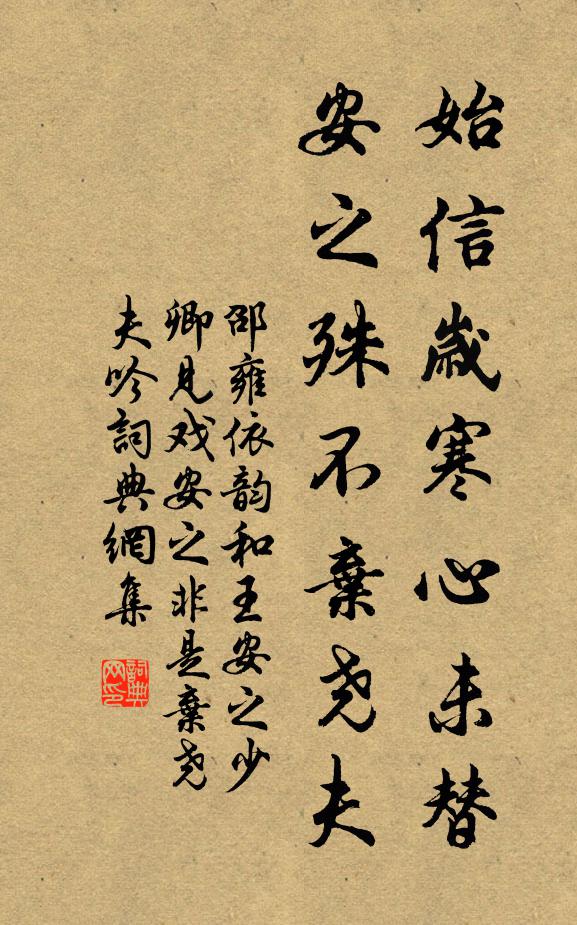 始信歲寒心未替
安之殊不棄尧夫
邵雍依韵和王安之少
卿見戏安之非是棄尧
夫吟詞典網集
詞典网印